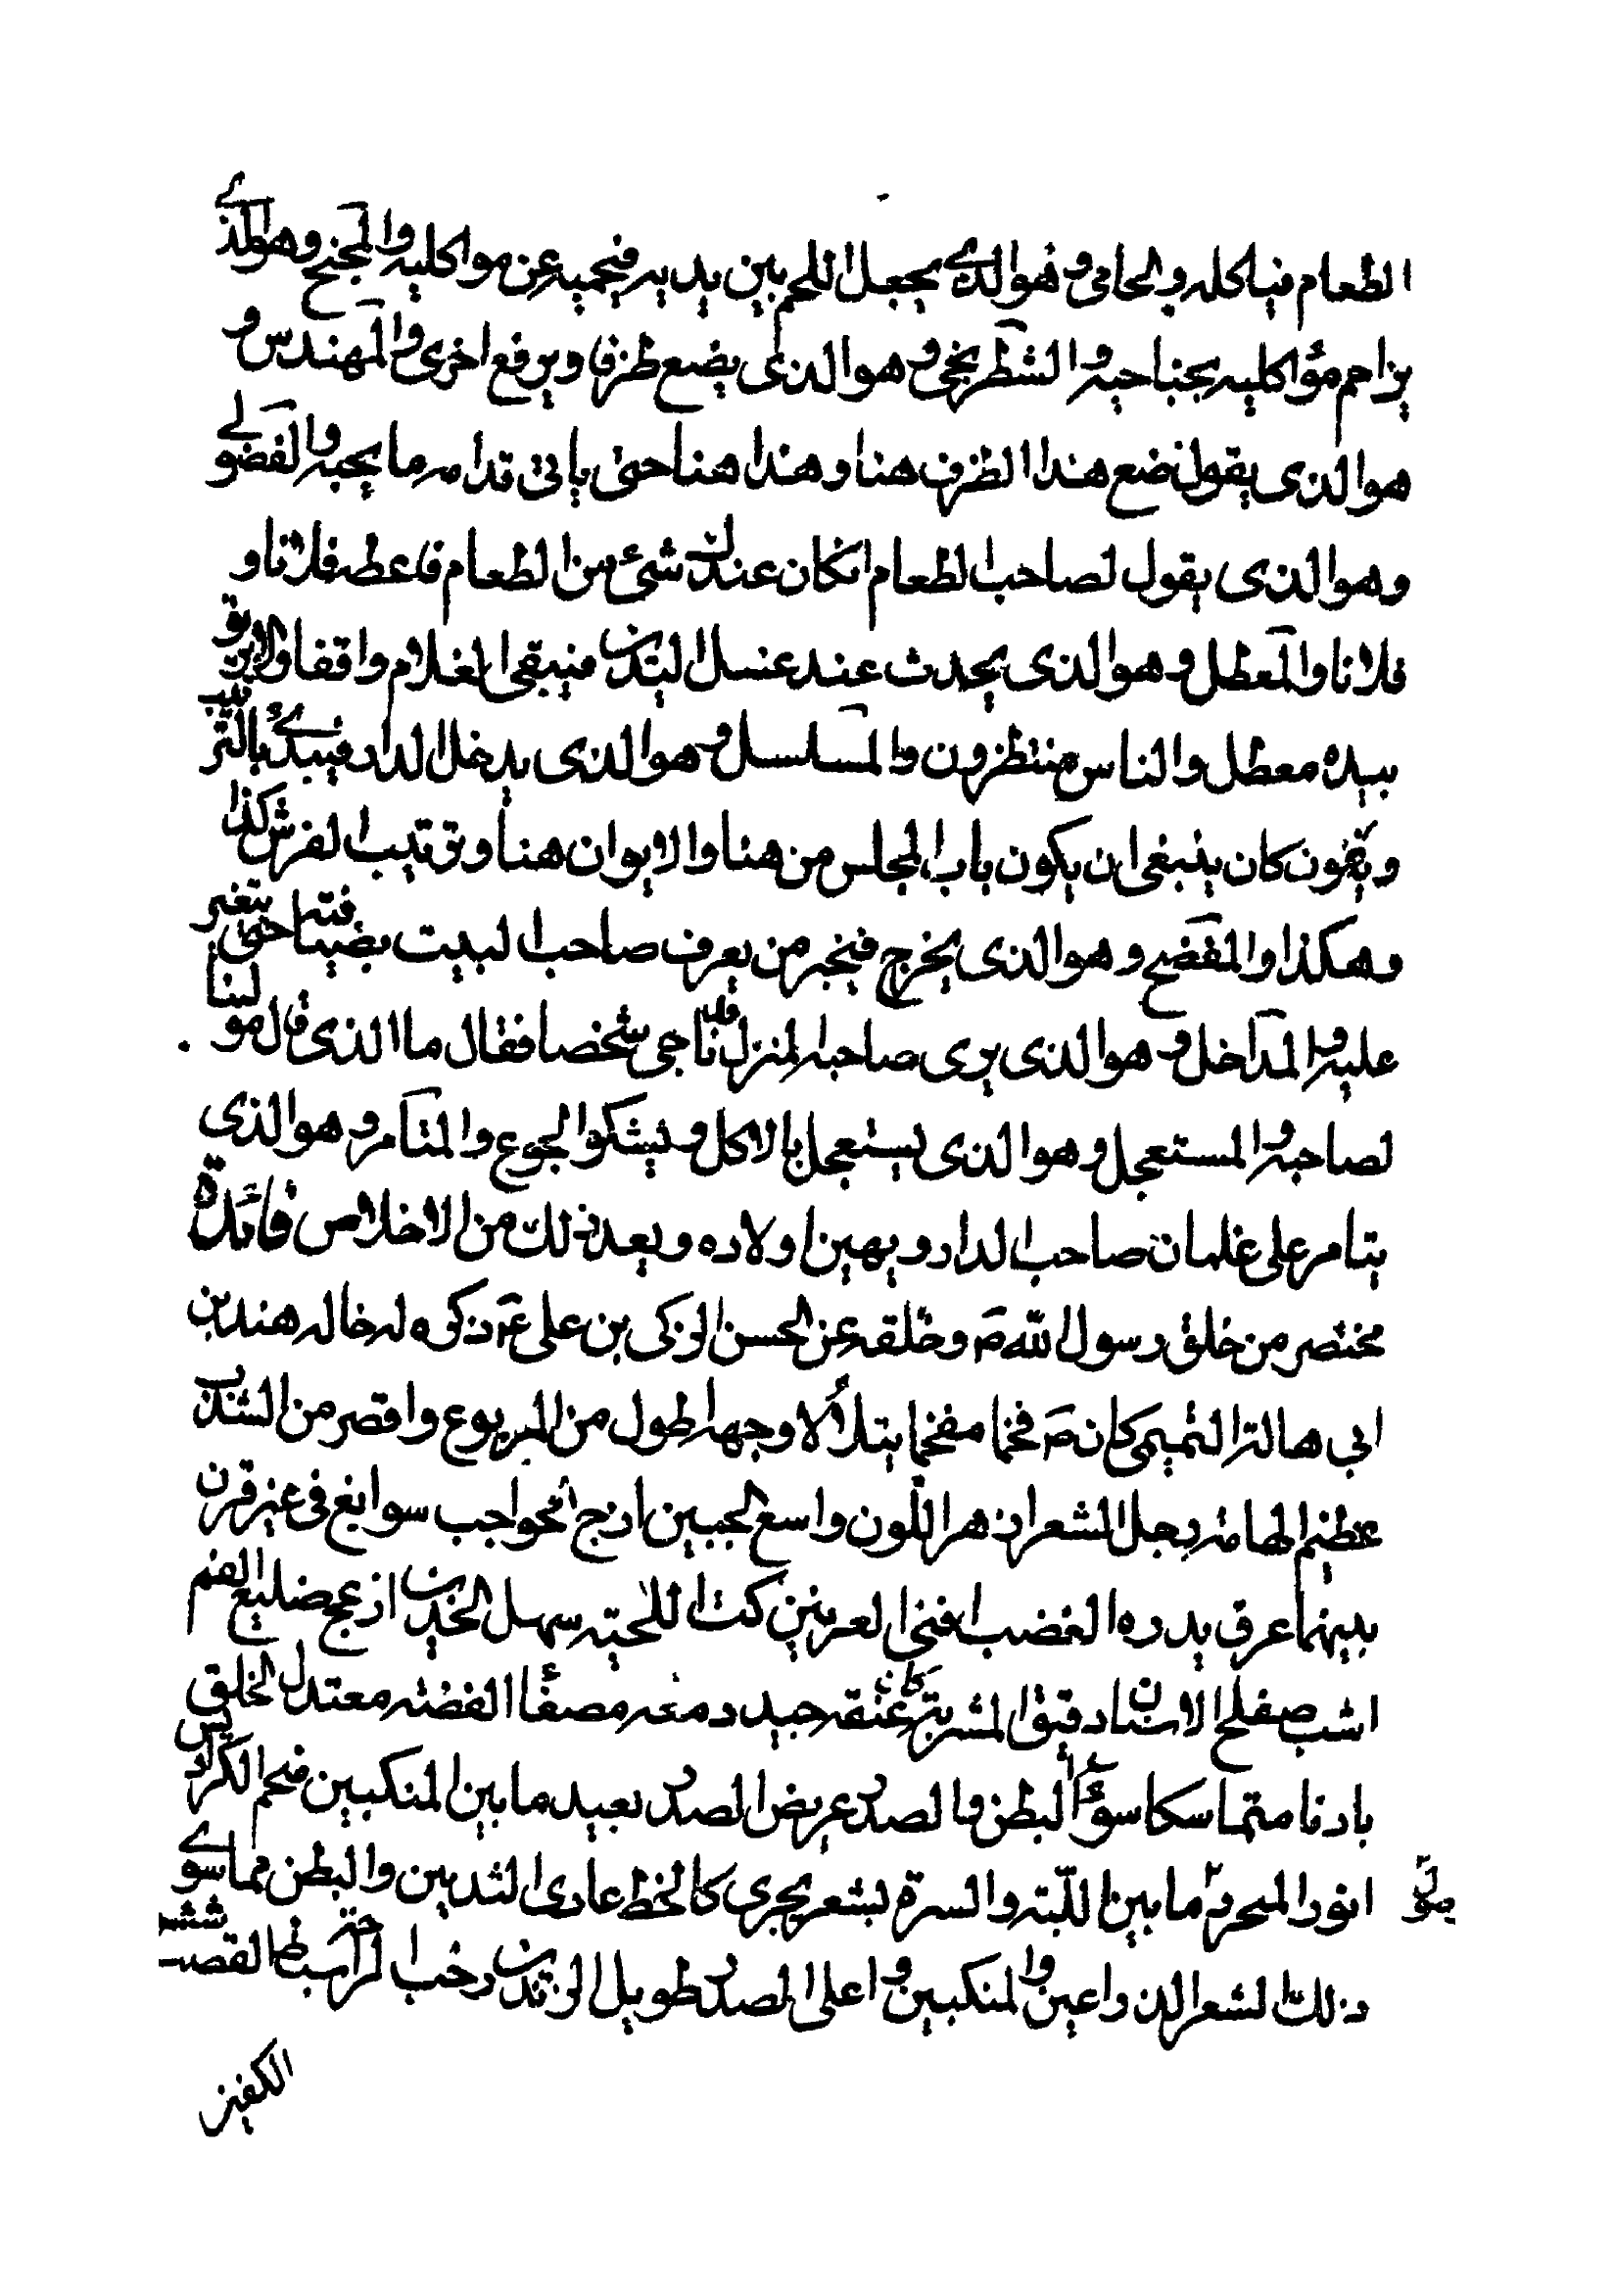 الطعام فياكله والحامى وهو الذي يجعل اللحم بين يديه فيحميه عن مواكليه والمجنح وهو الذي
يزاحم مؤاكليه بجناحيه والشطرنجى وهو الذى يضع ظرفا ويرفع اخرى والمهندس و
هو الذى يقول ضع هذا الظرف هنا وهذا هنا حتى ياتى قدامه ما يحبه والفضولے
وهو الذى يقول لصاحب الطعام انكان عندك شئ من الطعام فاعطه فلانا و
فلانا والمعطل وهو الذى يحدث عند غسل اليدين فيبقى الغلام واقفا والابريق
بيده معطل والناس منتظرون والمسلسل وهو الذى يدخل الدار فيبدئ بالترتيب
ويقول كان ينبغى ان يكون باب المجلس من هنا والايوان هنا وترتيب الفرش كذا
وهكذا والمفضح وهو الذى يخرج فيخبر من يعرف صاحب البيت بضيافته حتى يتغير
عليه والمداخل وهو الذى يرى صاحب المنزل قد ناجى شخصا فقال ما الذى قال مولينا
لصاحبه والمستعجل وهو الذى يستعجل بالاكل ويشكوا الجوع والمتامر وهو الذى
يتامر على غلمان صاحب الدار ويهين اولاده ويعد ذلك من الاخلاص فائدة
مختصر من خلق رسول الله ص وخلقه عن الحسن الزكى بن على ع ذكره له خاله هند بن
ابي هالة التميمى كان ص فخما مفخما يتلألا وجهه اطول من المربوع واقصر من المشذب
عظيم الهامة رجل الشعر ازهر اللون واسع الجبين ازج الحواجب سوابغ فى غير قرن
بينهما عرق يدره الغضب اقنى العرنين كث اللحية سهل الخدين ادعج ضليع الفم
اشنب مفلح الاسنان دقيق المسربة كان عنقه جيد دمية مصفا الفضة معتدل الخلق
بادنا متماسكا سوآء البطن والصدر عريض الصدر بعيد ما بين المنكبين ضخم الكراديس
انور المتجرد ما بين اللبة والسرة بشعر يجرى كالخط عارى الثديين والبطن مما سوے
ذلك اشعر الذراعين والمنكبين واعلى الصدر طويل الزندين رحب الراحة سبط القصب شثن
الكفين